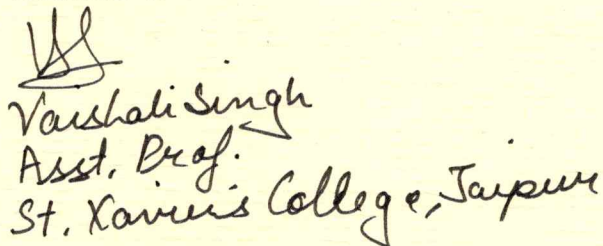 Vaishali Singh
Asst. Prof.
St. Xavier's College, Jaipur